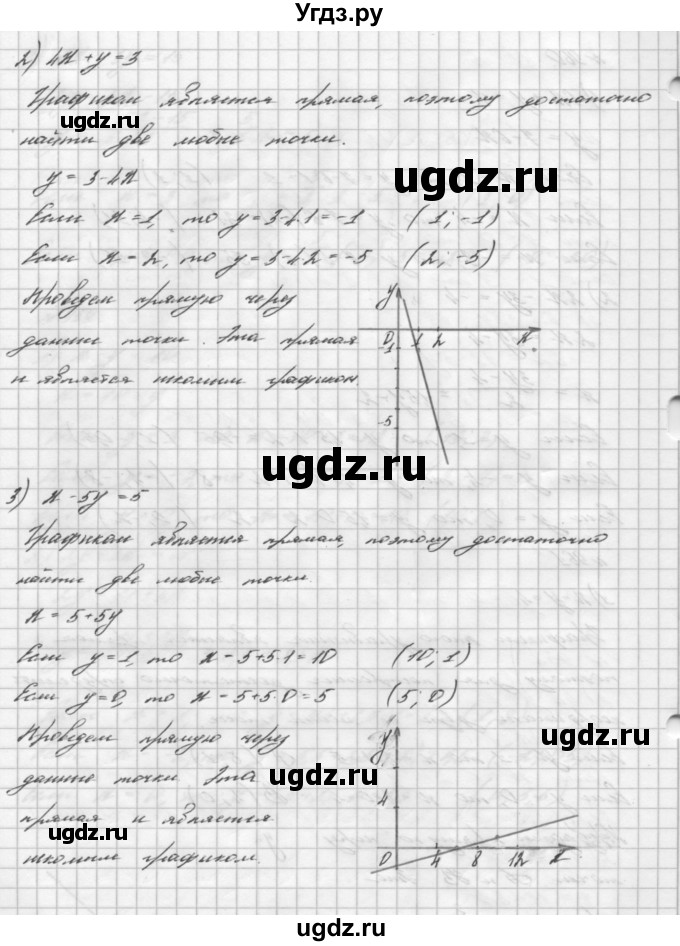 Угдз.ру
2) 4x + y = 3
Графиком является прямая, поэтому достаточно
ugdz.ru
найти две любые точки.
ugdz.ru
y = 3 - 4x
Если x = 1, то y = 3 - 4·1 = -1 (1; -1)
Если x = 2, то y = 3 - 4·2 = -5 (2; -5)
Проведем прямую через
данные точки. Эта прямая
и является искомым графиком.
y
0 1 2 x
-1
-5
ugdz.ru
3) x - 5y = 5
Графиком является прямая, поэтому достаточно
найти две любые точки.
x = 5 + 5y
Если y = 1, то x = 5 + 5·1 = 10 (10; 1)
Если y = 0, то x = 5 + 5·0 = 5 (5; 0)
Проведем прямую через
ugdz.ru
данные точки. Эта
ugdz.ru
прямая и является
ugdz.ru
искомым графиком.
y
4
0 4 8 12 x
ugdz.ru